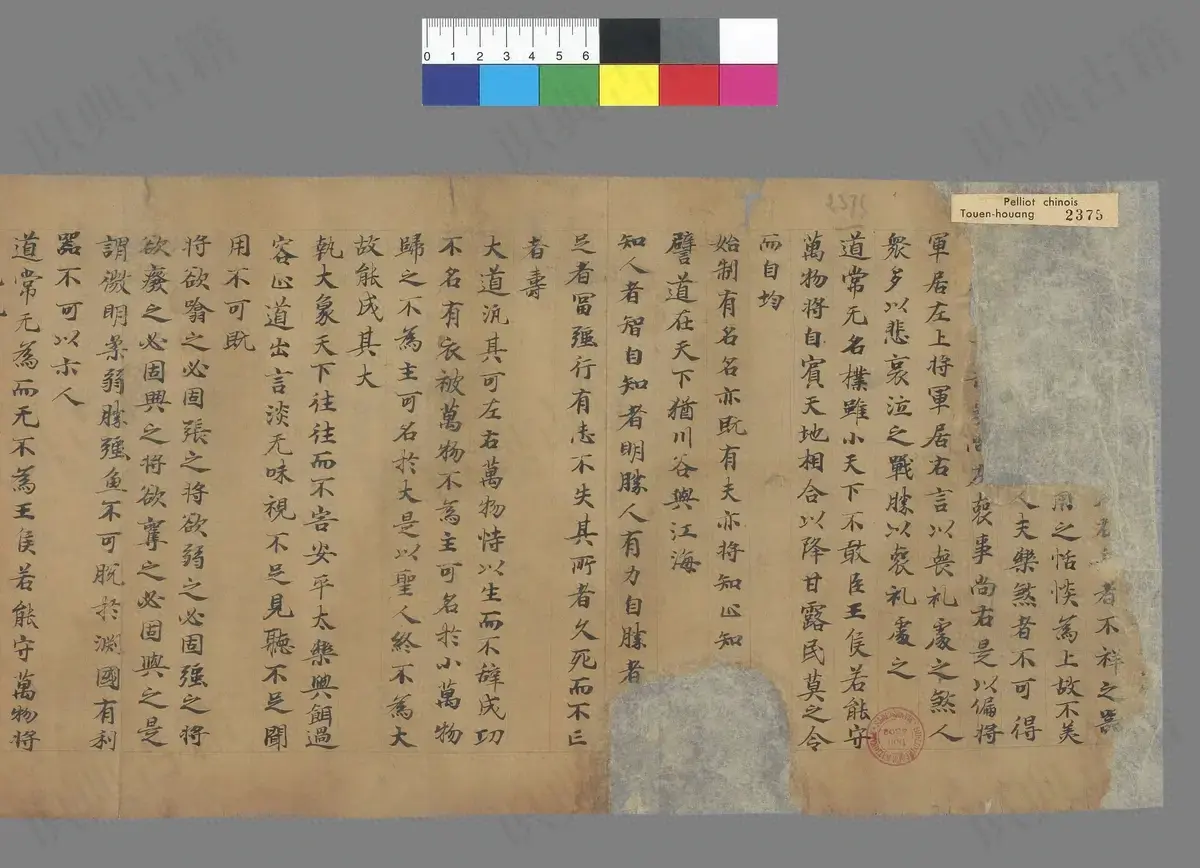 Pelliot chinois
Touen-houang 2375
0 1 2 3 4 5 6
2375
者不祥之器
用之恬惔為上故不美
人夫樂煞者不可得
喪事尚右是以偏將
軍居左上將軍居右言以喪礼處之煞人
衆多以悲哀泣之戰勝以喪礼處之
道常无名樸雖小天下不敢臣王侯若能守
萬物將自賓天地相合以降甘露民莫之令
而自均
始制有名名亦既有夫亦將知止知
譬道在天下猶川谷與江海
知人者智自知者明勝人有力自勝者
足者冨强行有志不失其所者久死而不亡
者壽
大道汎其可左右萬物恃以生而不辝成功
不名有衣被萬物不為主可名於小萬物
歸之不為主可名於大是以聖人終不為大
故能成其大
執大象天下往往而不害安平太樂與餌過
容止道出言淡无味視不足見聽不足聞
用不可既
將欲噏之必固張之將欲弱之必固强之將
欲廢之必固興之將欲奪之必固與之是
謂微明柔弱勝强魚不可脱於渊國有利
器不可以示人
道常无為而无不為王侯若能守萬物將
识典古籍